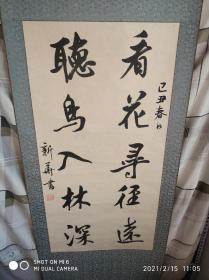 看花尋徑遠
聽鳥入林深
己丑春日
新華書
SHOT ON MI 6
MI DUAL CAMERA
2021/2/15 11:05